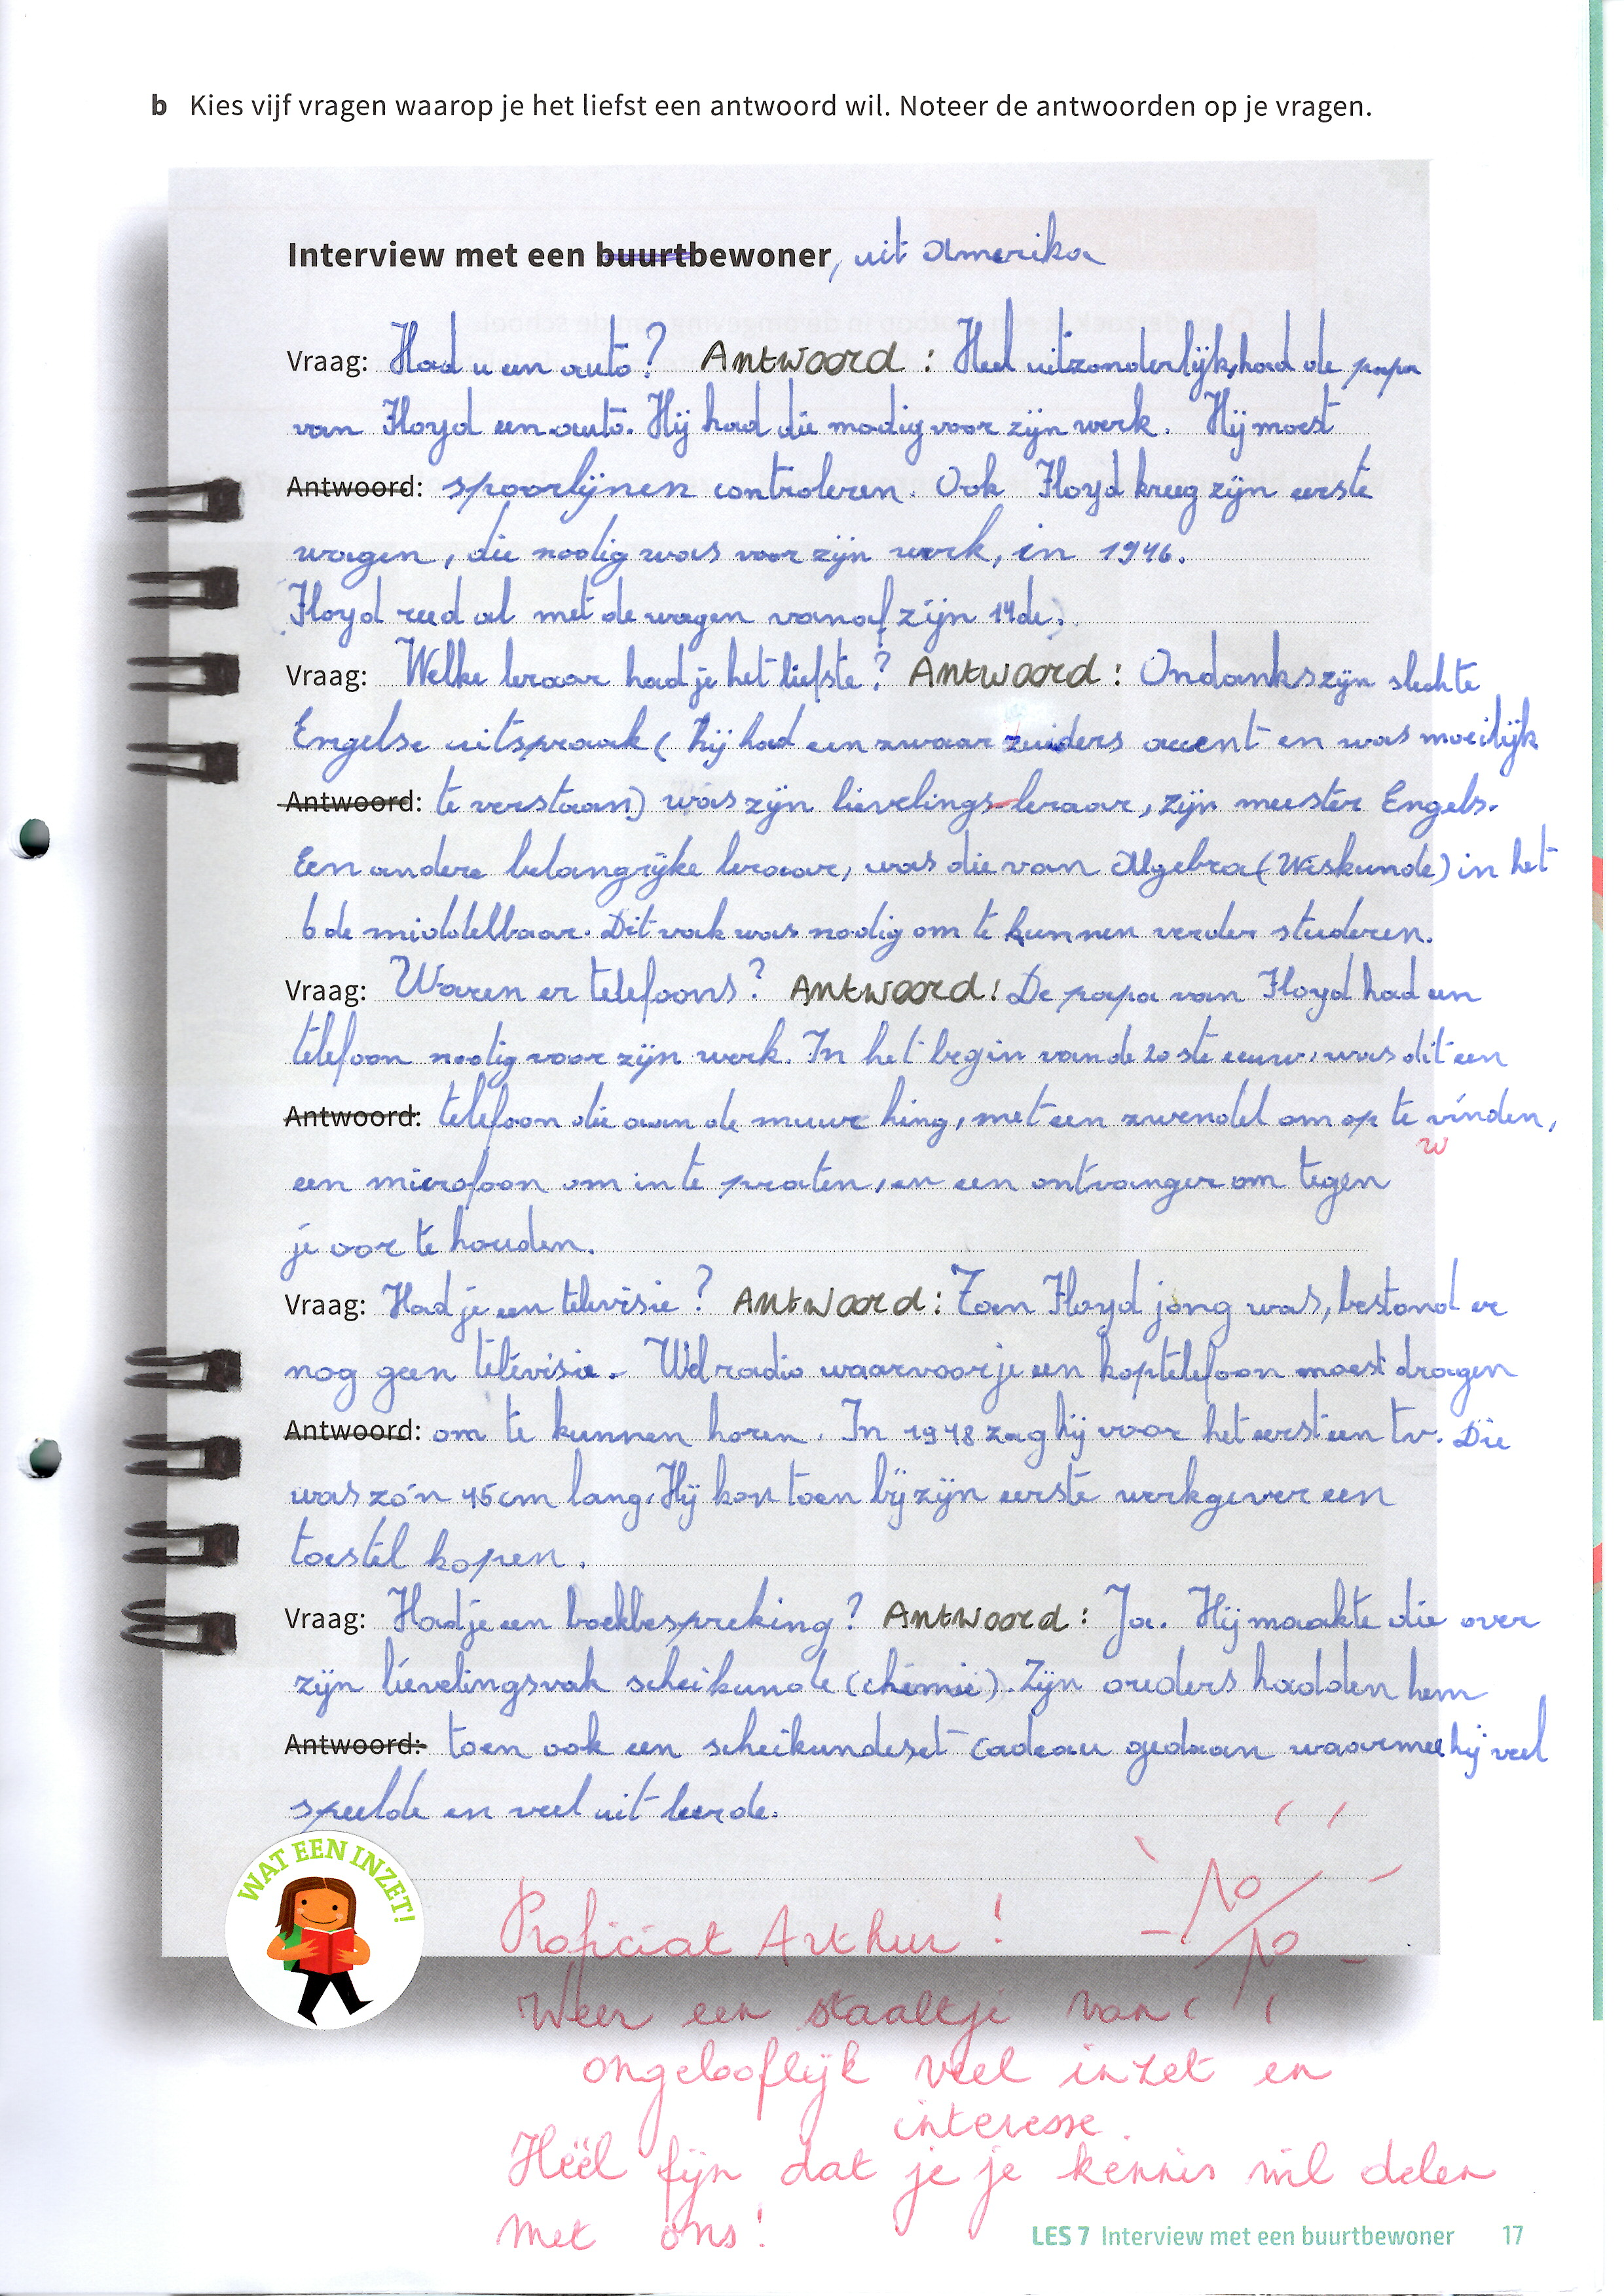 b Kies vijf vragen waarop je het liefst een antwoord wil. Noteer de antwoorden op je vragen.
Interview met een buurtbewoner, uit Amerika
Vraag: Had u een auto? Antwoord: Heel uitzonderlijk, had de papa
van Floyd een auto. Hij had die nodig voor zijn werk. Hij moest
Antwoord: spoorlijnen controleren. Ook Floyd kreeg zijn eerste
wagen, die nodig was voor zijn werk, in 1946.
(Floyd reed al met de wagen vanaf zijn 14de.)
Vraag: Welke leraar had je het liefste? Antwoord: Ondanks zijn slechte
Engelse uitspraak (hij had een zwaar zuiders accent en was moeilijk
Antwoord: te verstaan) was zijn lievelings-leraar, zijn meester Engels.
Een andere belangrijke leraar, was die van Algebra (Wiskunde) in het
6de middelbaar. Dit vak was nodig om te kunnen verder studeren.
Vraag: Waren er telefoons? Antwoord: De papa van Floyd had een
telefoon nodig voor zijn werk. In het begin van de 20ste eeuw, was dit een
Antwoord: telefoon die aan de muur hing, met een zwendel om op te vinden,
w
een microfoon om in te praten, en een ontvanger om tegen
je oor te houden.
Vraag: Had je een televisie? Antwoord: Toen Floyd jong was, bestond er
nog geen televisie. Wel radio waarvoor je een koptelefoon moest dragen
Antwoord: om te kunnen horen. In 1948 zag hij voor het eerst een tv. Die
was zo'n 45cm lang. Hij kon toen bij zijn eerste werkgever een
toestel kopen.
Vraag: Had je een boekbespreking? Antwoord: Ja. Hij maakte die over
zijn lievelingsvak scheikunde (chemie). Zijn ouders hadden hem
Antwoord: toen ook een scheikundeset cadeau gedaan waarmee hij veel
speelde en veel uit leerde.
WAT EEN INZET!
10/10
Proficiat Arthur!
Weer een staaltje van
ongelooflijk veel inzet en
interesse.
Héél fijn dat je je kennis wil delen
met ons!
LES 7 Interview met een buurtbewoner 17